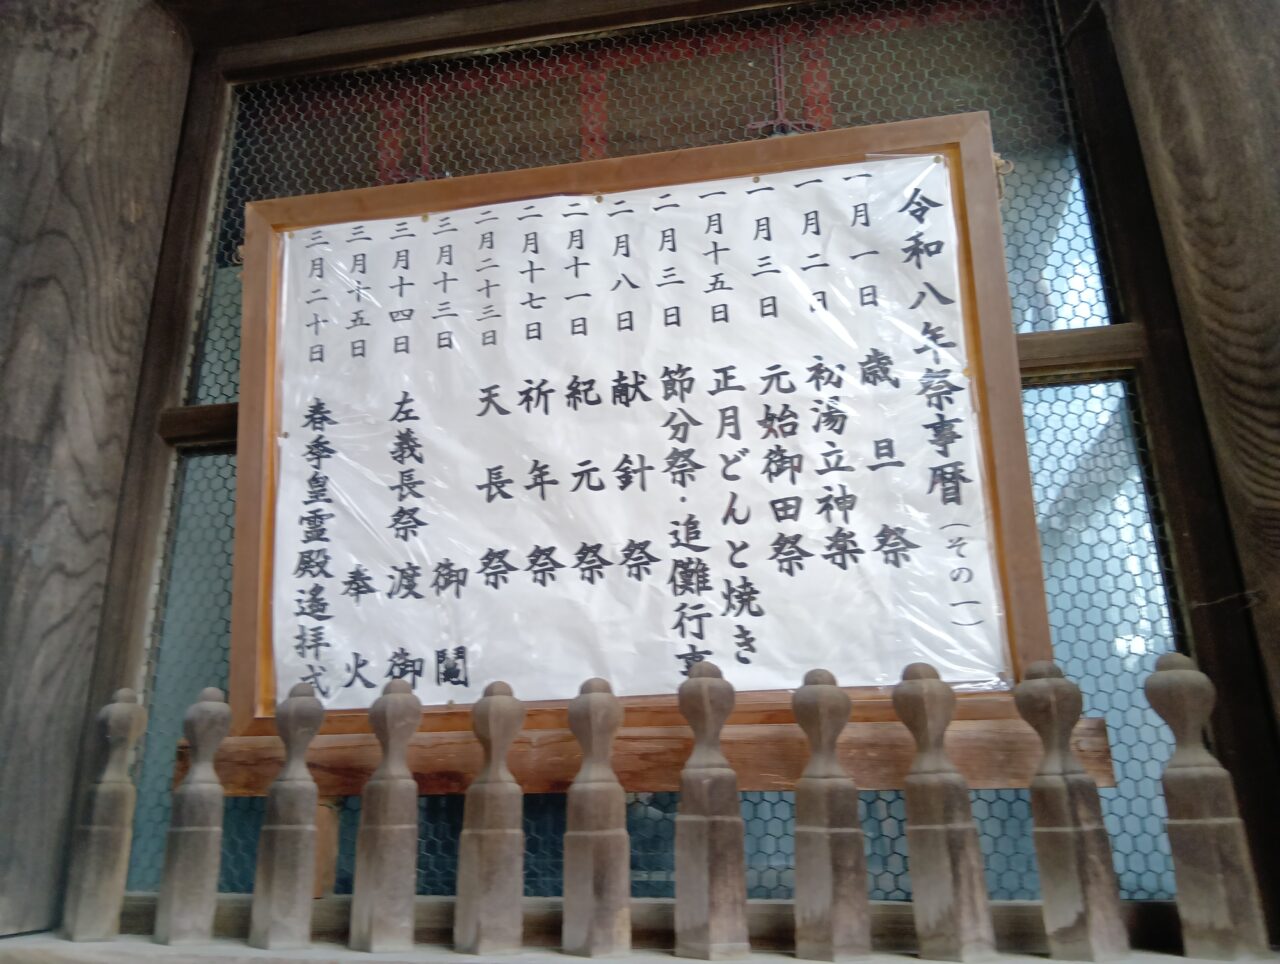 令和八年祭事暦（その一）
一月一日 歳旦祭
一月二日 初湯立神楽
一月三日 元始御田祭
一月十五日 正月どんと焼き
二月三日 節分祭・追儺行事
二月八日 献針祭
二月十一日 紀元祭
二月十七日 祈年祭
二月二十三日 天長祭
三月十三日 御鬮
三月十四日 左義長祭 渡御
三月十五日 奉火
三月二十日 春季皇霊殿遙拝式